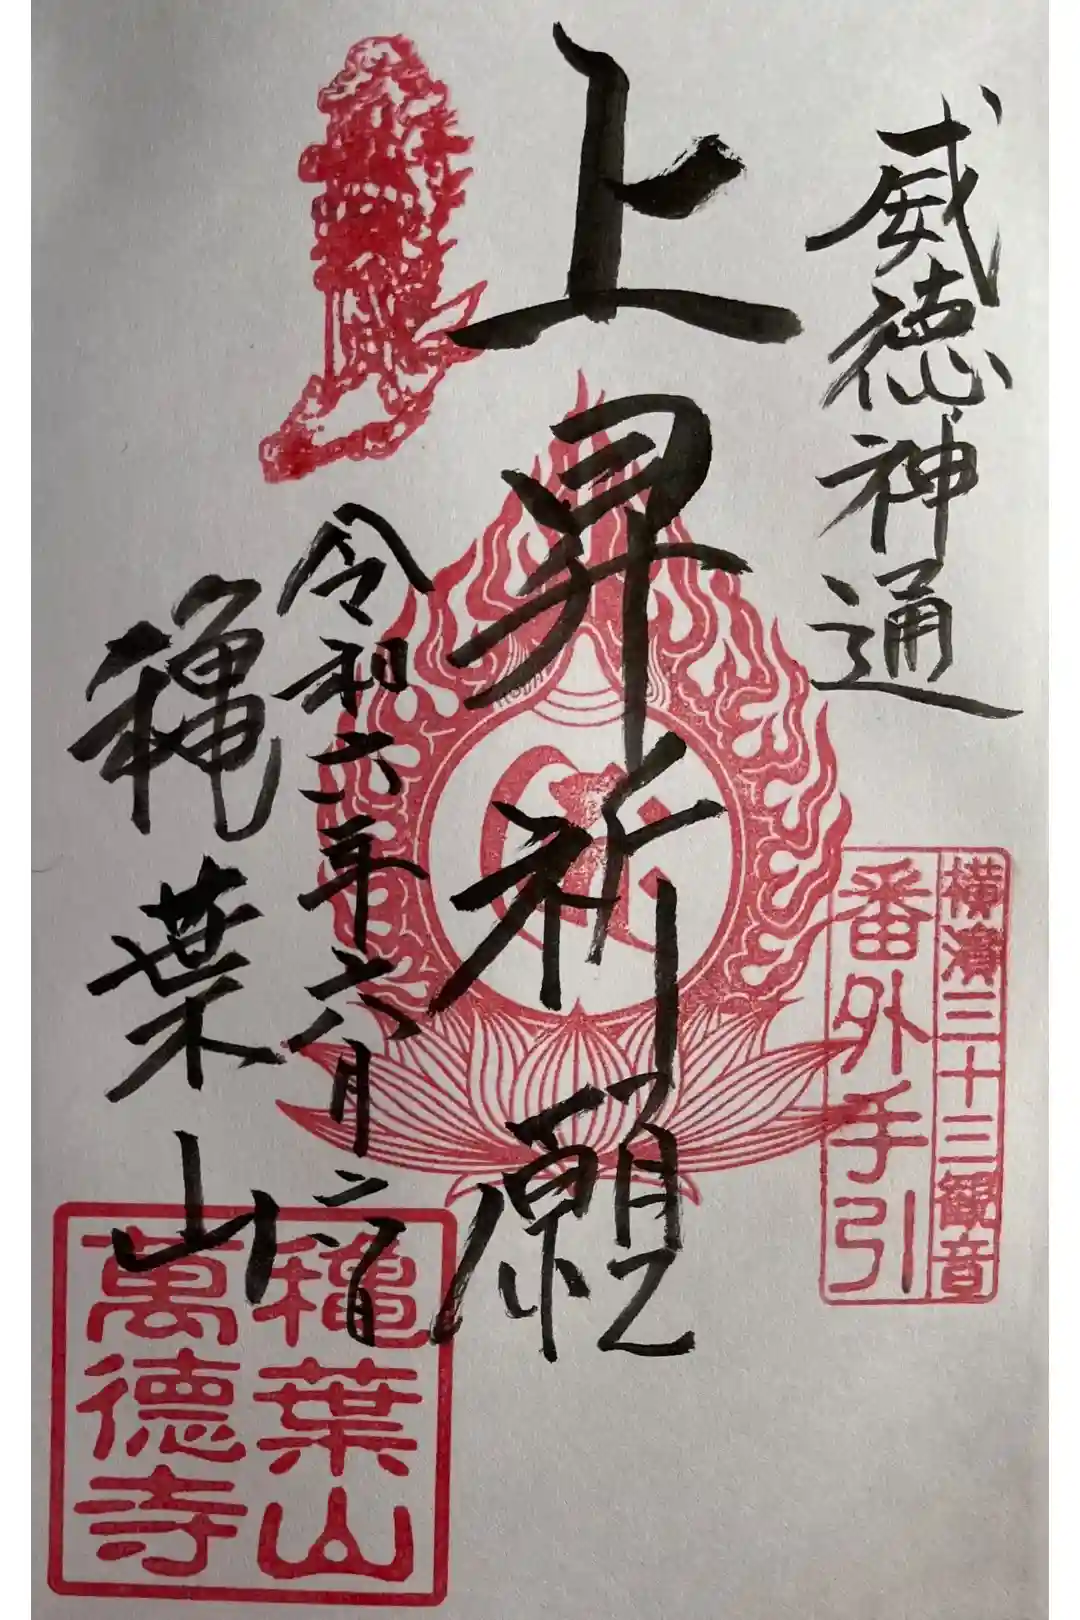 威徳神通
横濱三十三観音
番外手引
上昇祈願
令和六年六月
穐葉山
穐葉山
萬徳寺